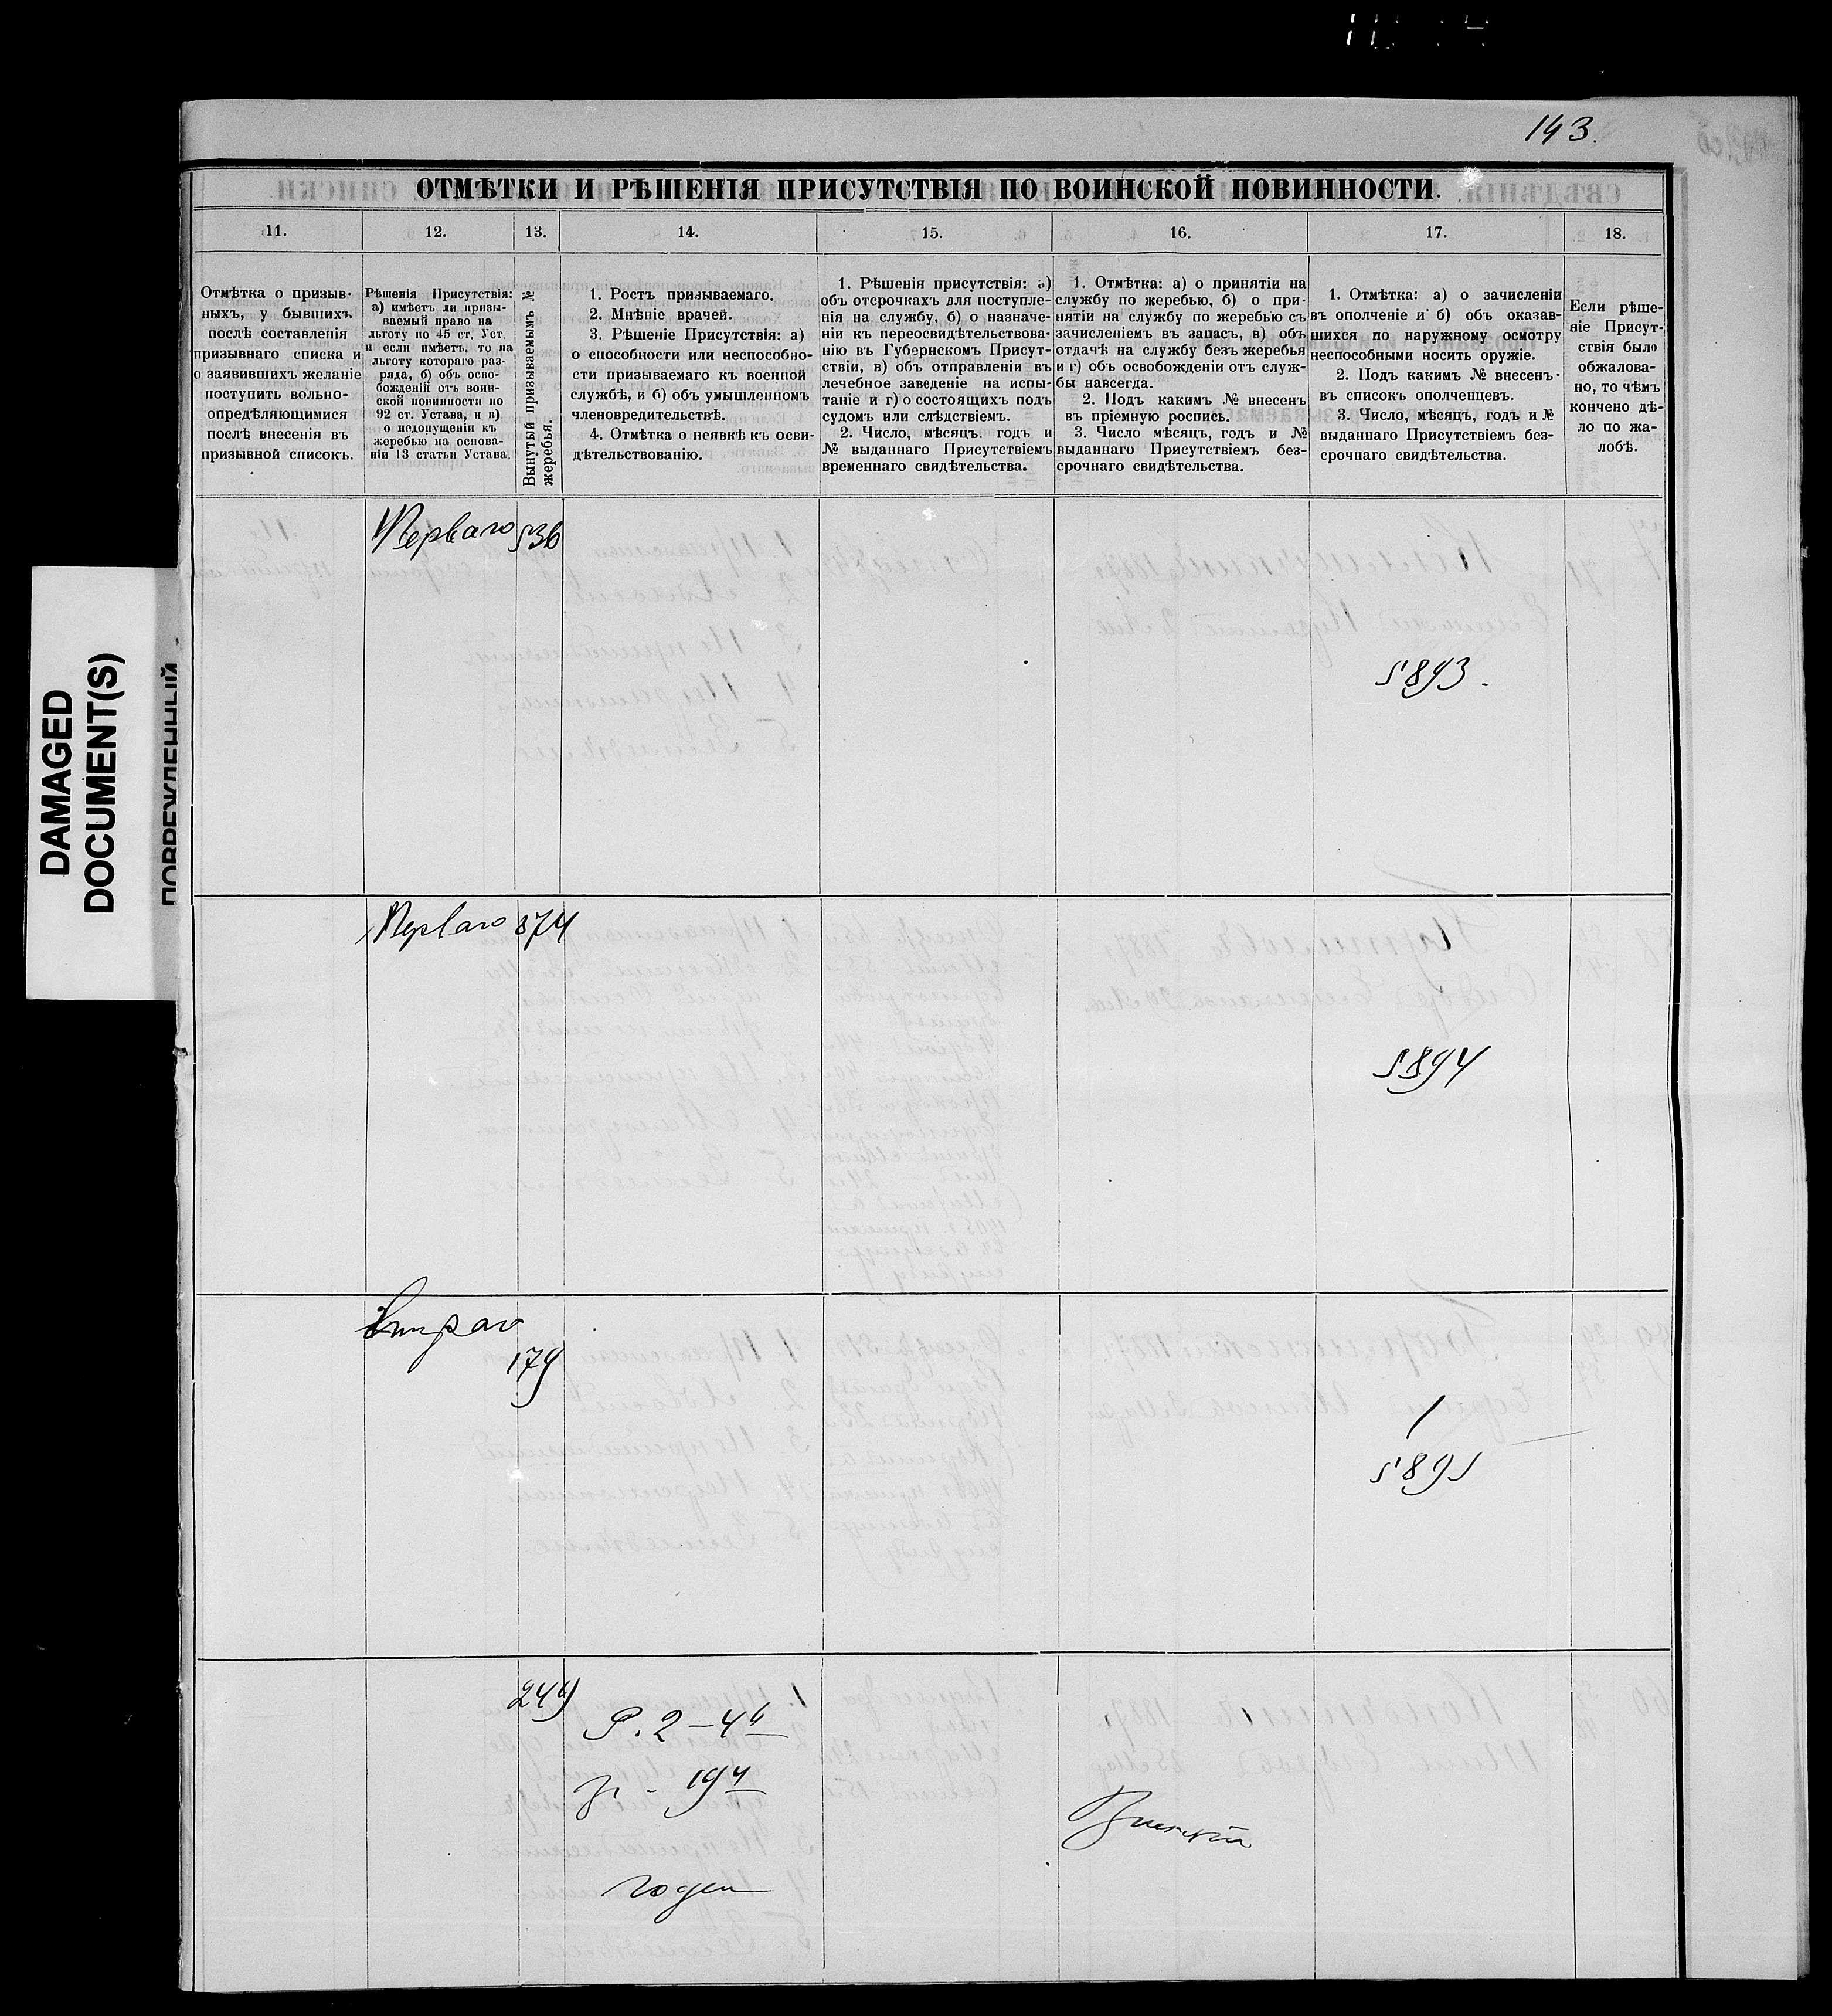 143.
ОТМѢТКИ И РѢШЕНІЯ ПРИСУТСТВІЯ ПО ВОИНСКОЙ ПОВИННОСТИ.
11.
12.
13.
14.
15.
16.
17.
18.
Отмѣтка о призыв-
ныхъ, у бывшихъ
послѣ составленія
призывнаго списка и
о заявившихъ желаніе
поступить вольно-
опредѣляющимися
послѣ внесенія въ
призывной списокъ.
Рѣшенія Присутствія:
а) имѣетъ ли призы-
ваемый право на
льготу по 45 ст. Уст.
и если имѣетъ, то на
льготу котораго раз-
ряда, б) объ осво-
божденіи отъ воин-
ской повинности по
92 ст. Устава, и в)
о недопущеніи къ
жеребью на основа-
ніи 13 статьи Устава.
Вынутый призываемымъ №
жеребья.
1. Ростъ призываемаго.
2. Мнѣніе врачей.
3. Рѣшеніе Присутствія: а)
о способности или неспособно-
сти призываемаго къ военной
службѣ, и б) объ умышленномъ
членовредительствѣ.
4. Отмѣтка о неявкѣ къ осви-
дѣтельствованію.
1. Рѣшенія присутствія: а)
объ отсрочкахъ для поступле-
нія на службу, б) о назначе-
ніи къ переосвидѣтельствова-
нію въ Губернскомъ Присут-
ствіи, в) объ отправленіи въ
лечебное заведеніе на испы-
таніе и г) о состоящихъ подъ
судомъ или слѣдствіемъ.
2. Число, мѣсяцъ, годъ и
№ выданнаго Присутствіемъ
временнаго свидѣтельства.
1. Отмѣтка: а) о принятіи на
службу по жеребью, б) о при-
нятіи на службу по жеребью съ
зачисленіемъ въ запасъ, в) объ
отдачѣ на службу безъ жеребья
и г) объ освобожденіи отъ служ-
бы навсегда.
2. Подъ какимъ № внесенъ
въ пріемную роспись.
3. Число мѣсяцъ, годъ и №
выданнаго Присутствіемъ без-
срочнаго свидѣтельства.
1. Отмѣтка: а) о зачисленіи
въ ополченіе и б) объ оказав-
шихся по наружному осмотру
неспособными носить оружіе.
2. Подъ какимъ № внесенъ
въ списокъ ополченцевъ.
3. Число, мѣсяцъ, годъ и №
выданнаго Присутствіемъ без-
срочнаго свидѣтельства.
Если рѣше-
ніе Присут-
ствія было
обжалова-
но, то чѣмъ
кончено дѣ-
ло по жа-
лобѣ.
Перваго 536
5893.
Перваго 874
5894
Втораго
179
5895
249
Р. 2 – 4 4/8
годен
DAMAGED
DOCUMENT(S)
ПОВРЕЖДЕННЫЙ